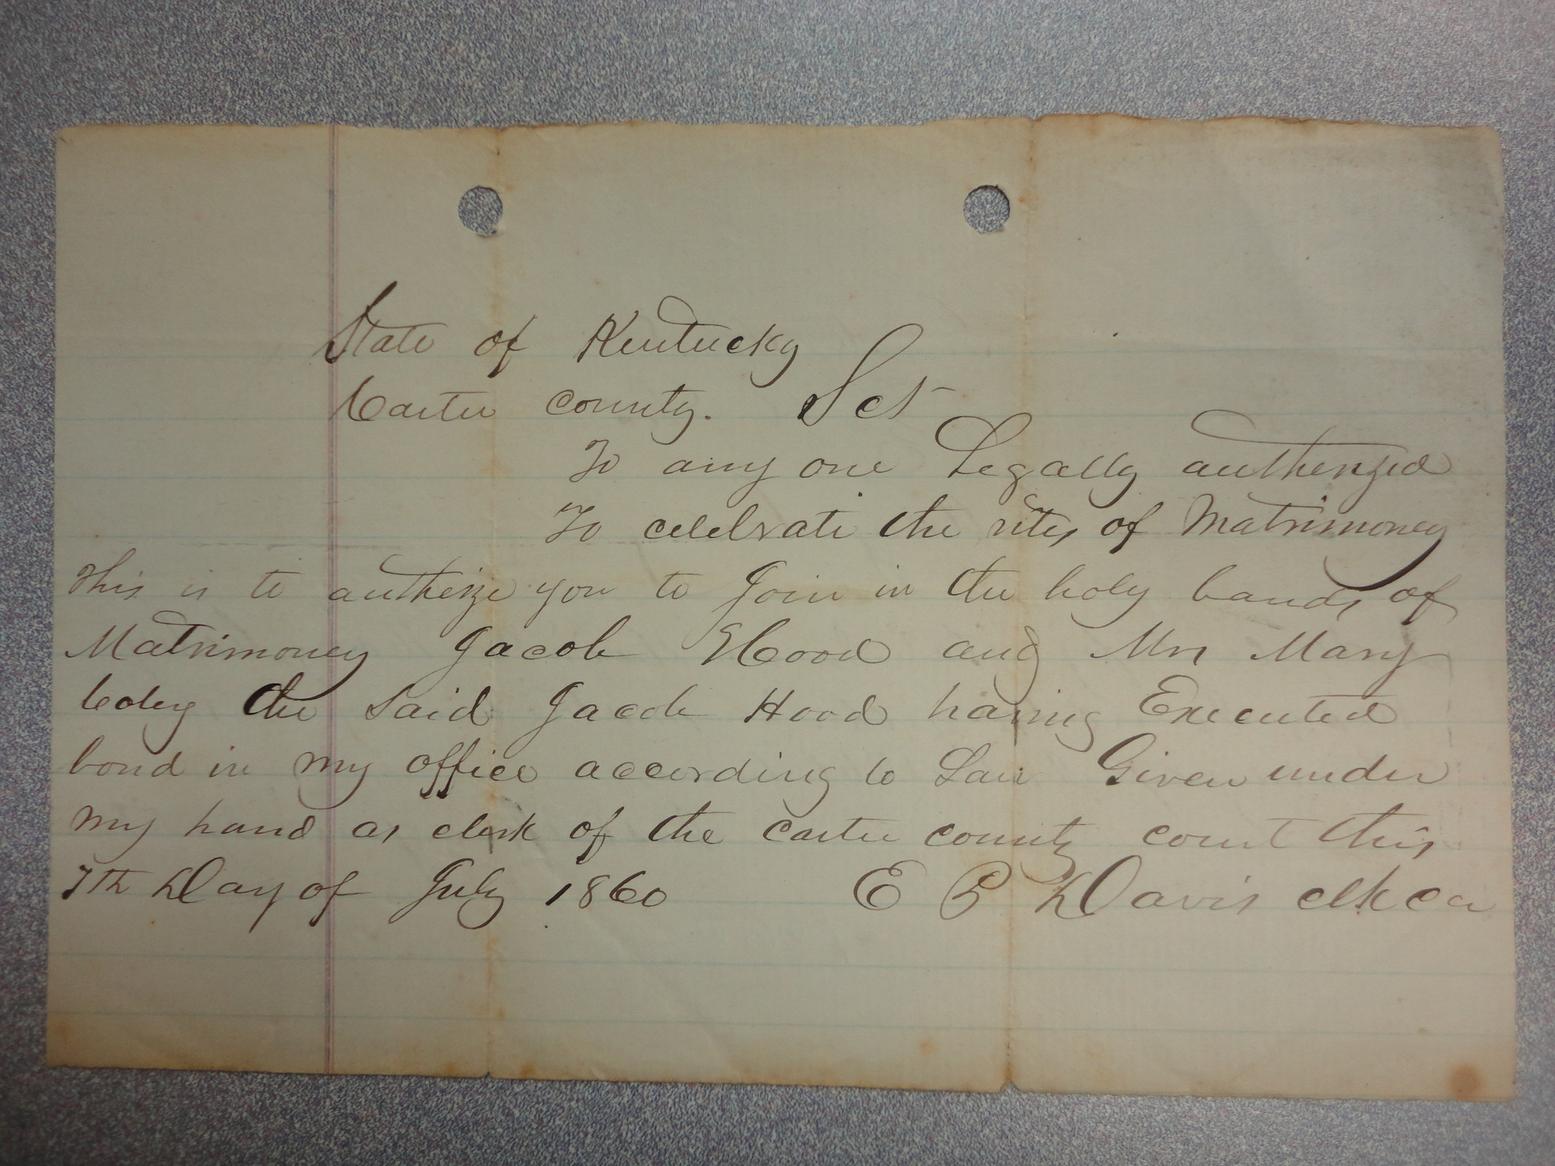 State of Kentucky
Carter county. Sct
To any one Legally autherized
To celebrate the rites of Matrimoney
This is to autherize you to Join in the holy bands of
Matrimoney Jacob Hood and Mrs Mary
the Said Jacob Hood having Executed
bond in my office according to Law Given under
my hand as clerk of the carter county court this
7th Day of July 1860 E B Davis clk